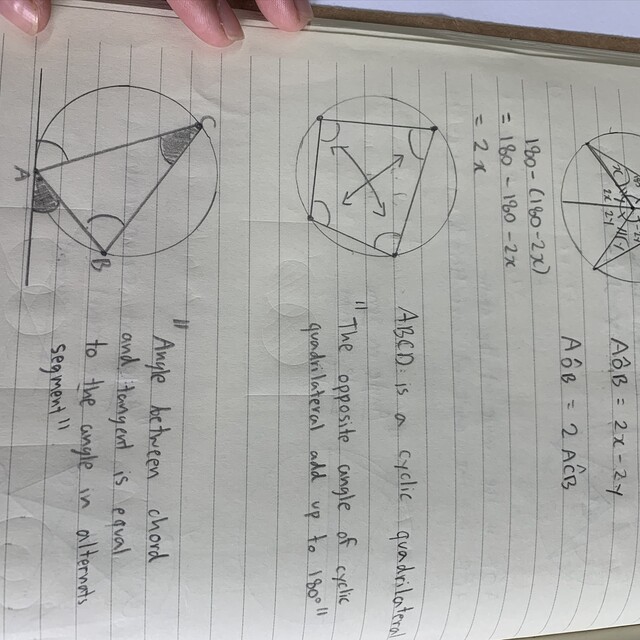 AÔB = 2x - 2y
AÔB = 2 AĈB
180 - (180 - 2x)
= 180 - 180 - 2x
= 2x
ABCD is a cyclic quadrilateral
"The opposite angle of cyclic
quadrilateral add up to 180°"
C
A
B
" Angle between chord
and tangent is equal
to the angle in alternats
segment"